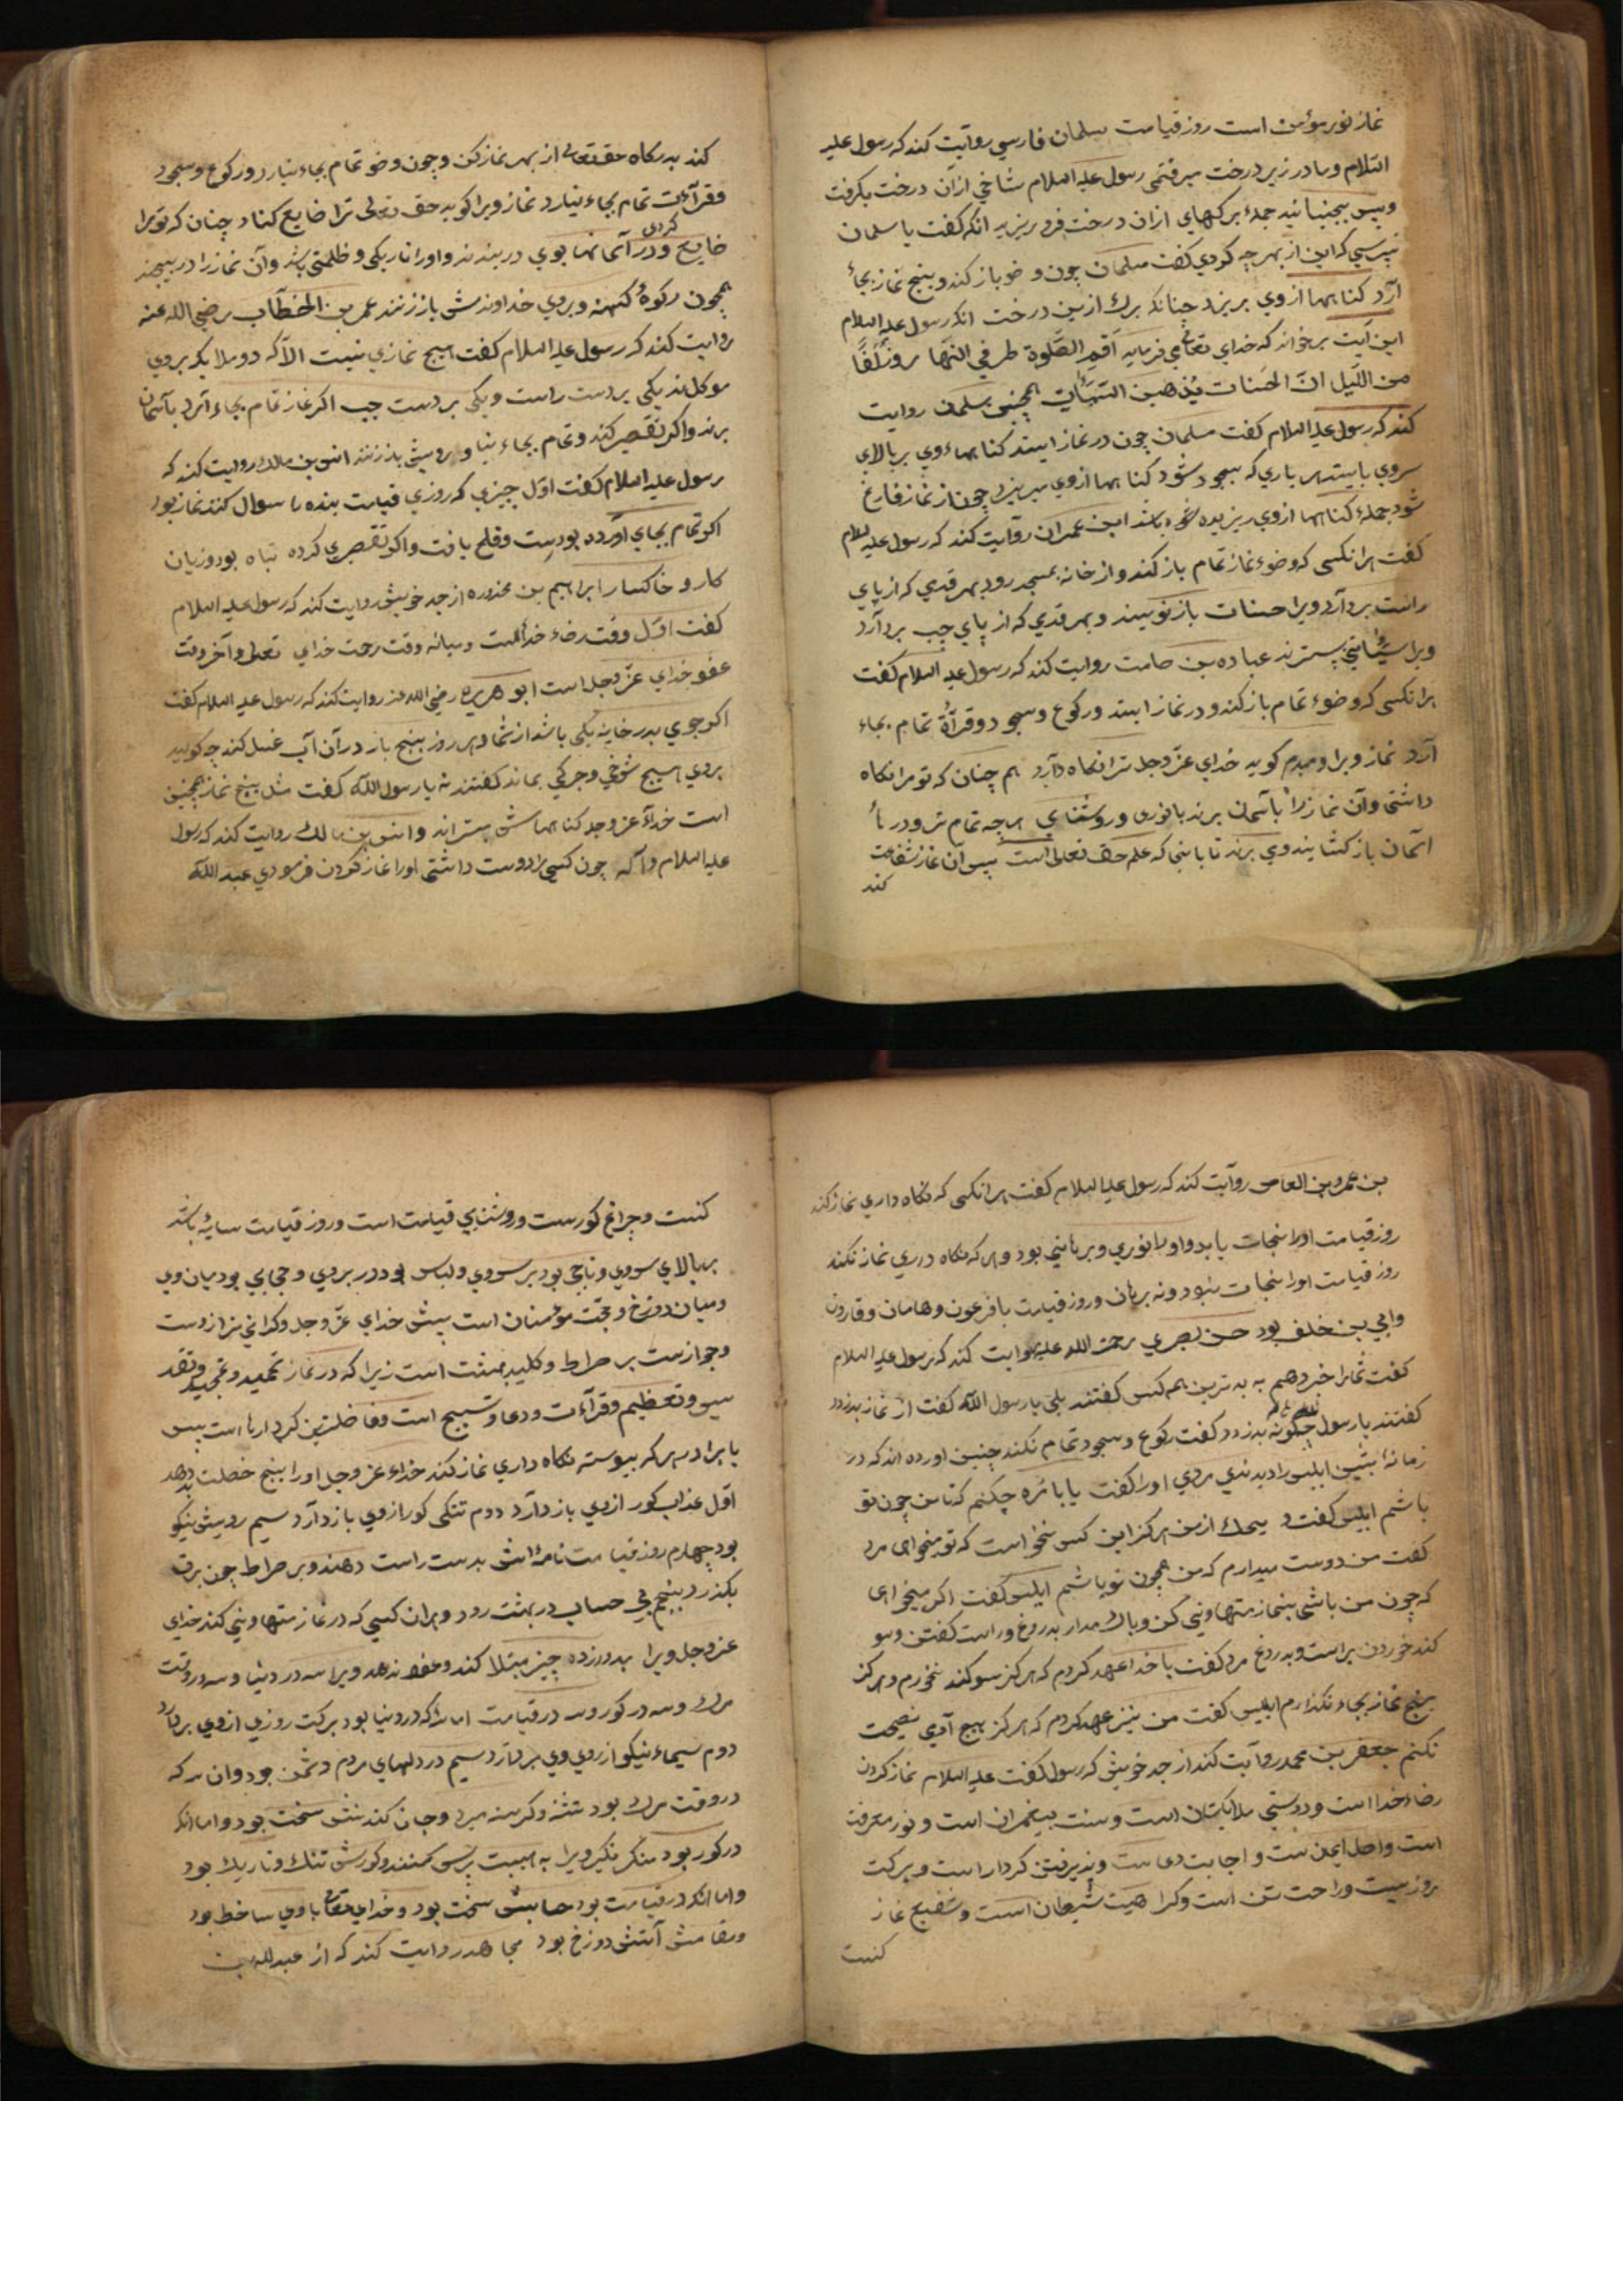 نماز نور مؤمن است روز قیامت سلمان فارسی روآیت کند که رسول علیه
السّلام و ما در زیر درخت میرفتمی رسول علیه السلام شاخی از آن درخت بکرفت
و پس بجنبانید جملهٔ برکهای از ان درخت فرو ریزید انکه کفت یا سلمان
نپرسی که این از بهر چه کردی کفت مسلمان چون وضو باز کند و پنج نماز بجاء
آرد کناهها از وی بریزد چنانکه برك ازین درخت انکه رسول علیه السلام
این آیت برخواند که خدای تعالی میفرماید اَقِمِ الصَّلوة طرفی النهار وزُلَفًا
من اللّیل انّ الحَسَنات یُذهبن السّیّئات همچنین سلمان روایت
کند که رسول علیه السلام کفت مسلمان چون در نماز ایستد کناههاء وی بر بالای
سروی بایستد هر باری که بسجود شود کناهها از وی میریزد چون از نماز فارغ
شود جملهٔ کناهها از وی ریزیده شوه باشد ابن عمران روآیت کند که رسول علیه السلام
کفت هرانکسی که وضوء نماز تمام باز کند و از خانه بمسجد رود بهر قدمی که از پای
راست بردآرد ویرا حسنات باز نویسند و بهر قدمی که از پای چپ بردآرد
ویرا سیّئاتی بسترند عباده بن صامت روایت کند که رسول علیه السلام کفت
هرانکسی که وضوء تمام باز کند و در نماز ایستد و رکوع و سجود و قرآة تمام بجاء
آرد نماز ویرا و میدم کوید خدای عزّوجل ترا نکاه دآرد هم چنان که تو مرا نکاه
داشتی و آن نماز را بآسمان برند با نوری و روشنای هرچه تمام تر و درها
آسمان باز کشایند و وی برند تا باینجا که علم حق تعالی است پس آن نماز شفاعت
کند
کند بدرکاه حق تعالی از بهر نماز کن و چون وضو تمام بجاء نیارد و رکوع و سجود
و قرآءت تمام بجاء نیارد نماز ویرا کوید حق تعالی ترا ضایع کناد چنان که تو مرا
ضایع کردی و در آسمانها بوی در بندند و اورا تاریکی و ظلمتی باشد و آن نماز را در پیچند
همچون رکوهٔ کهنه و بروی خداوندش باز زنند عمر بن الخطّاب رضی الله عنه
روایت کند که رسول علیه السلام کفت هیچ نمازی نیست الاّ که دو ملایکه بروی
موکل اند یکی بر دست راست و یکی بر دست چپ اکر نماز تمام بجاء آرد بآسمان
برند و اکر تقصیر کند و تمام بجاء نیاو برویش بدزنند انس بن مالك روایت کند که
رسول علیه السلام کفت اوّل چیزی که روزی قیامت بنده را سوال کنند نماز بود
اکر تمام بجای آورده بود برست و فلح یافت و اکر تقصیری کرده تباه بود و زیان
کار و خاکسار ابراهیم بن محذوره از جد خویش روایت کند که رسول علیه السلام
کفت اوّل وقت رضاء خدآلست و میانه وقت رحمت خدای تعالی و آخر وقت
عفو خدای عزّوجل است ابو هریره رضی الله عنه روایت کند که رسول علیه السلام کفت
اکر جوی بدر خانه یکی باشد از شما و هر روز پنج بار در آن آب غسل کند چه کویید
بروی هیچ شوخی و چرکی بماند کفتند نه یا رسول اللّه کفت مثل پنج نماز همچنین
است خدآء عزوجد کناههاش بستراند و انس بن مالك روایت کند که رسول
علیه السلام را که چون کسی را دوست داشتی اورا نماز کردن فرمودی عبد اللّه
بن عمرو بن العاص روآیت کند که رسول علیه السلام کفت هرانکسی که نکاه داری نماز کند
روز قیامت اورا نجات یابد و اورا نوری و برهانی بود و هر که نکاه داری نماز نکند
روز قیامت اورا نجات نبود و نه برهان و روز قیامت با فرعون و هامان و قارون
و ابی بن خلف بود حسن بصری رحمة الله علیه روایت کند که رسول علیه السلام
کفت شما را خبر دهم به بدترین همه کس کفتند بلی یا رسول اللّه کفت از نماز بدزدد
کفتند یا رسول چکونه بدزدد کفت رکوع و سجود تمام نکند چنین اورده اند که در
زمانهٔ پیشین ابلیس را بدیدندی مردی اورا کفت یابا مُره چکنم که تا من چون تو
باشم ابلیس کفت و یحك از من هرکز این کس نخواست که تو میخواهی مرد
کفت من دوست میدارم که من همچون تو باشم ابلیس کفت اکر میخواهی
که چون من باشی بنماز متهاونی کن و باك مدار بدروغ و راست کفتن و سو
کند خوردن براست و بدروغ مرد کفت با خدا عهد کردم که هرکز سوکند نخورم و هرکز
پنج نماز بجاء نکذارم ابلیس کفت من نیز عهد کردم که هرکز هیچ آدمی نصیحت
نکنم جعفر بن محمد روآیت کند از جد خویش که رسول کفت علیه السلام نماز کردن
رضاء خدا است و دوستی ملایکتان است و سنت پیغمبران است و نور معرفت
است و اصل ایمن ست و اجابت دعا ست و پذیرفتن کردار است و برکت
روزیست و راحت تن است و کراهیت شیطان است و شفیع نماز
کنست
کنست و چراغ کورست و روشنایی قیامت است و روز قیامت سایهٔ باشد
بر بالای سروی و تاجی بود بر سروی و لباس بود در بروی و حجابی بود میان وی
و میان دوزخ و حجّت مؤمنان است پیش خدای عزّوجل و کرانی ترازوست
و جوازست بر صراط و کلید بهشت است زیرا که در نماز تحمید و تمجید و تقد
یس و تعظیم و قرآءت و دعا و تسبیح است و فاضلترین کردارها است پس
یا برادر هر که پیوسته نکاه داری نماز کند خداء عزوجل اورا پنج خصلت بدهد
اوّل عذاب کور از وی باز دآرد دوم تنکی کور از وی باز دآرد سیم رویش نیکو
بود چهارم روز قیامت نامه اش بدست راست دهند و بر صراط چون برق
بکذرد پنجم بی حساب در بهشت رود و هران کسی که در نماز متهاونی کند خدای
عزوجل ویرا بدوازده چیز مبتلا کند و عفو ندهد ویرا سه در دنیا و سه در وقت
مرك و سه در کور و سه در قیامت اما انکه در دنیا بود برکت روزی از وی بردآرد
دوم سیماء نیکو از روی وی بردآرد سیم در دلهای مردم دشمن بود و ان سه که
در وقت مرك بود تشنه و کرسنه میرد و جان کندنش سخت بود و اما انکه
در کور بود منکر نکیر ویرا به هیبت پرسش کنند و کورش تنك و تاریك بود
و اما انکه در قیامت بود حسابش سخت بود و خدای تعالی باوی ساخط بود
و مقامش آتش دوزخ بود مجاهد روایت کند که از عبدلله بن